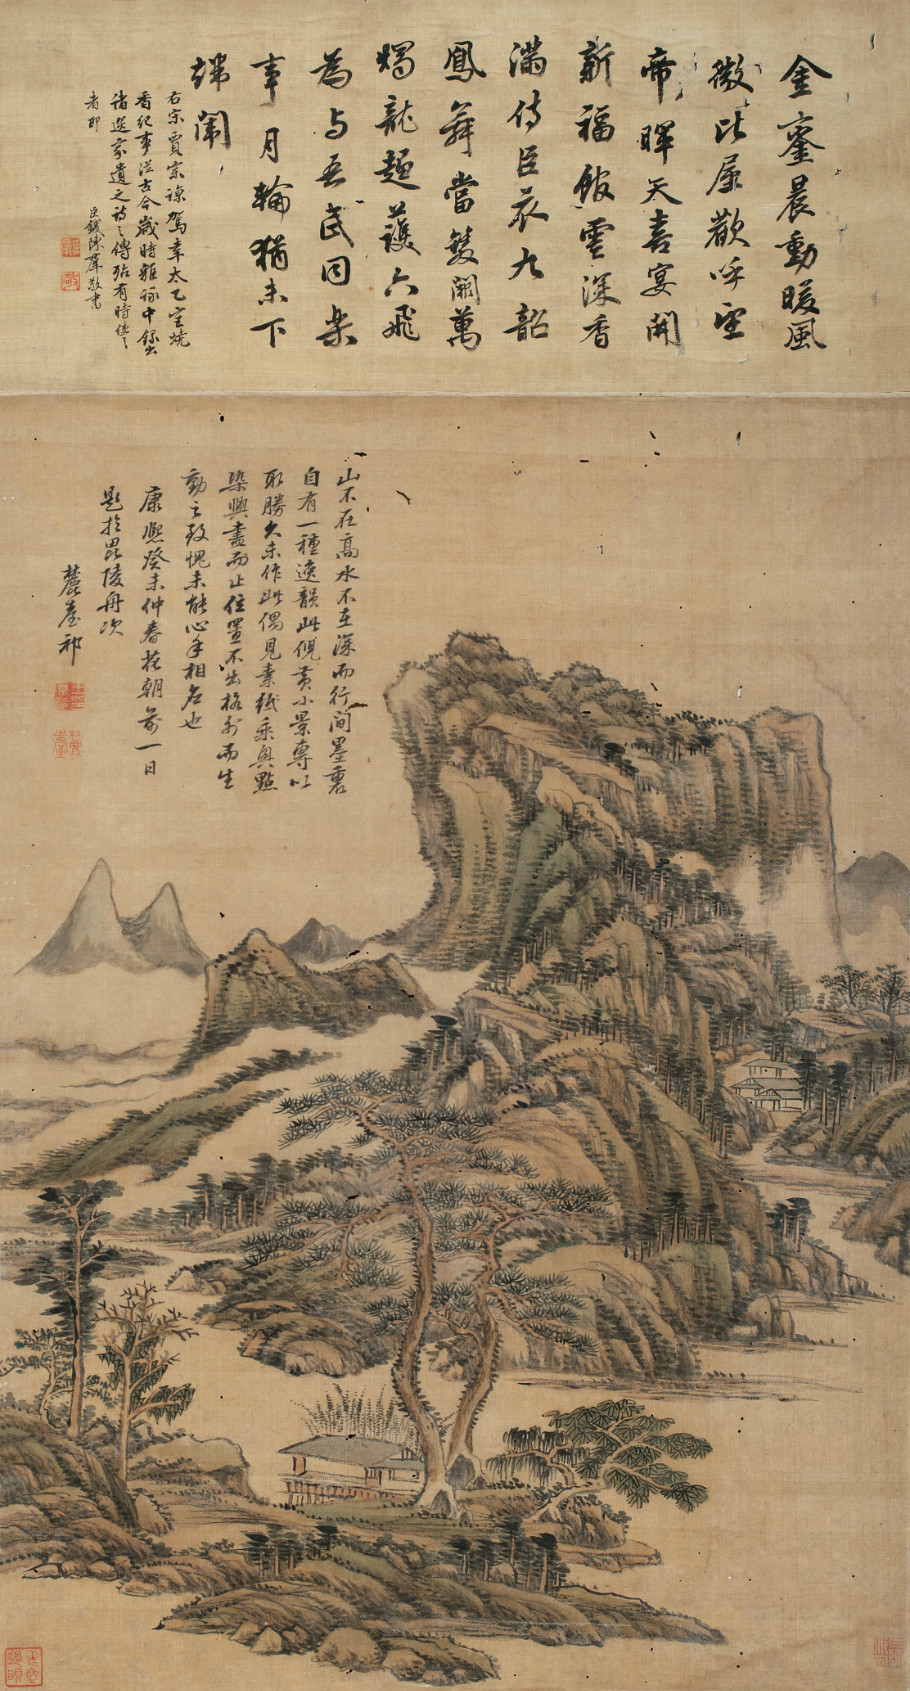 金鑾晨動暖風
微比屋歡呼望
帝暉天喜宴開
新福館雲深香
滿侍臣衣九韶
鳳舞當雙闕萬
燭龍趨護六飛
為与吾民同樂
事月輪猶未下
端闈
右宋賈宗諒駕幸太乙宮燒
香紀事從古今歲時雜詠中錄出
諸選家遺之詩之傳殆有時使之
者耶
臣錢陳群敬書
山不在高水不在深而行間墨裏
自有一種逸韻此倪黃小景專以
取勝久未作此偶見素紙乘興點
染興盡而止位置不出格外而生
動之致愧未能心手相應也
康熙癸未仲春花朝前一日
題於毘陵舟次
麓臺祁